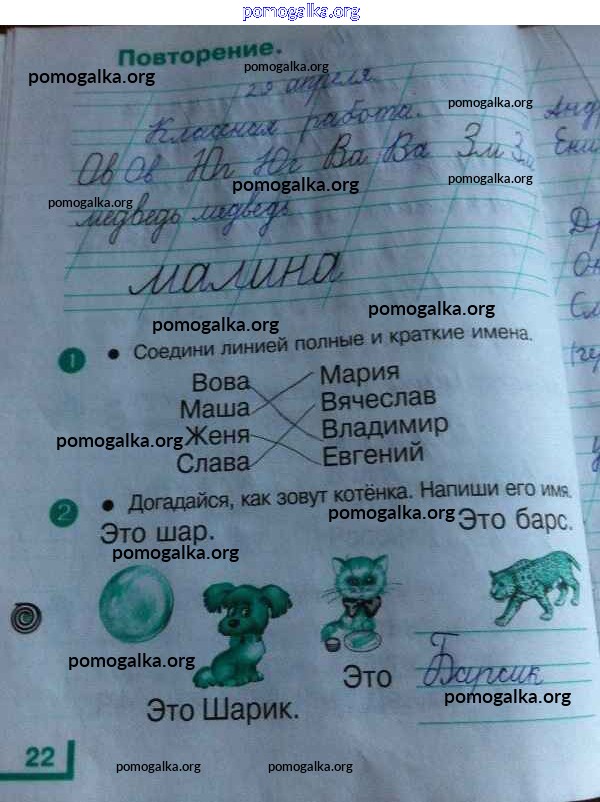 pomogalka.org
Повторение.
pomogalka.org
pomogalka.org
29 апреля.
pomogalka.org
Классная работа.
Ов Ов Юг Юг Ва Ва Зм Зм
pomogalka.org
pomogalka.org
pomogalka.org
медведь медведь
малина
pomogalka.org
pomogalka.org
1 • Соедини линией полные и краткие имена.
Вова Мария
Маша Вячеслав
Женя Владимир
Слава Евгений
pomogalka.org
2 • Догадайся, как зовут котёнка. Напиши его имя.
pomogalka.org
Это шар. Это барс.
pomogalka.org
pomogalka.org
Это Барсик
pomogalka.org
Это Шарик.
22
pomogalka.org
pomogalka.org